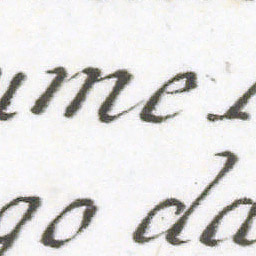 ume
go da